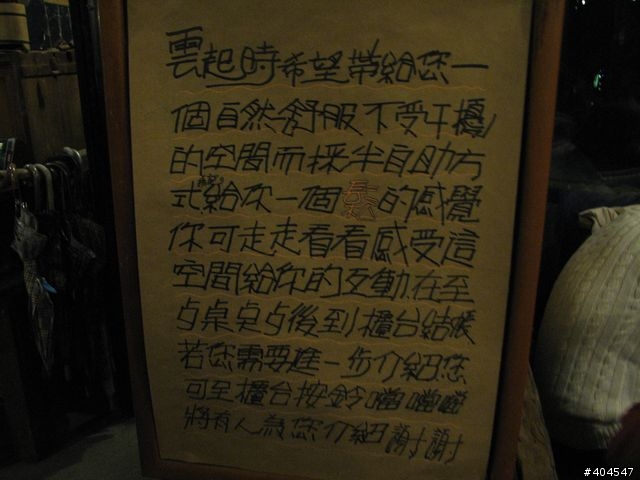 雲起時希望帶給您一
個自然舒服不受干擾
的空間而採半自助方
式給你一個的感覺
你可走走看看感受這
空間給你的互動.在至
点桌点点後到櫃台結帳
若您需要進一步介紹您
可至櫃台按鈴噹噹噹
將有人為您介紹謝謝
#404547